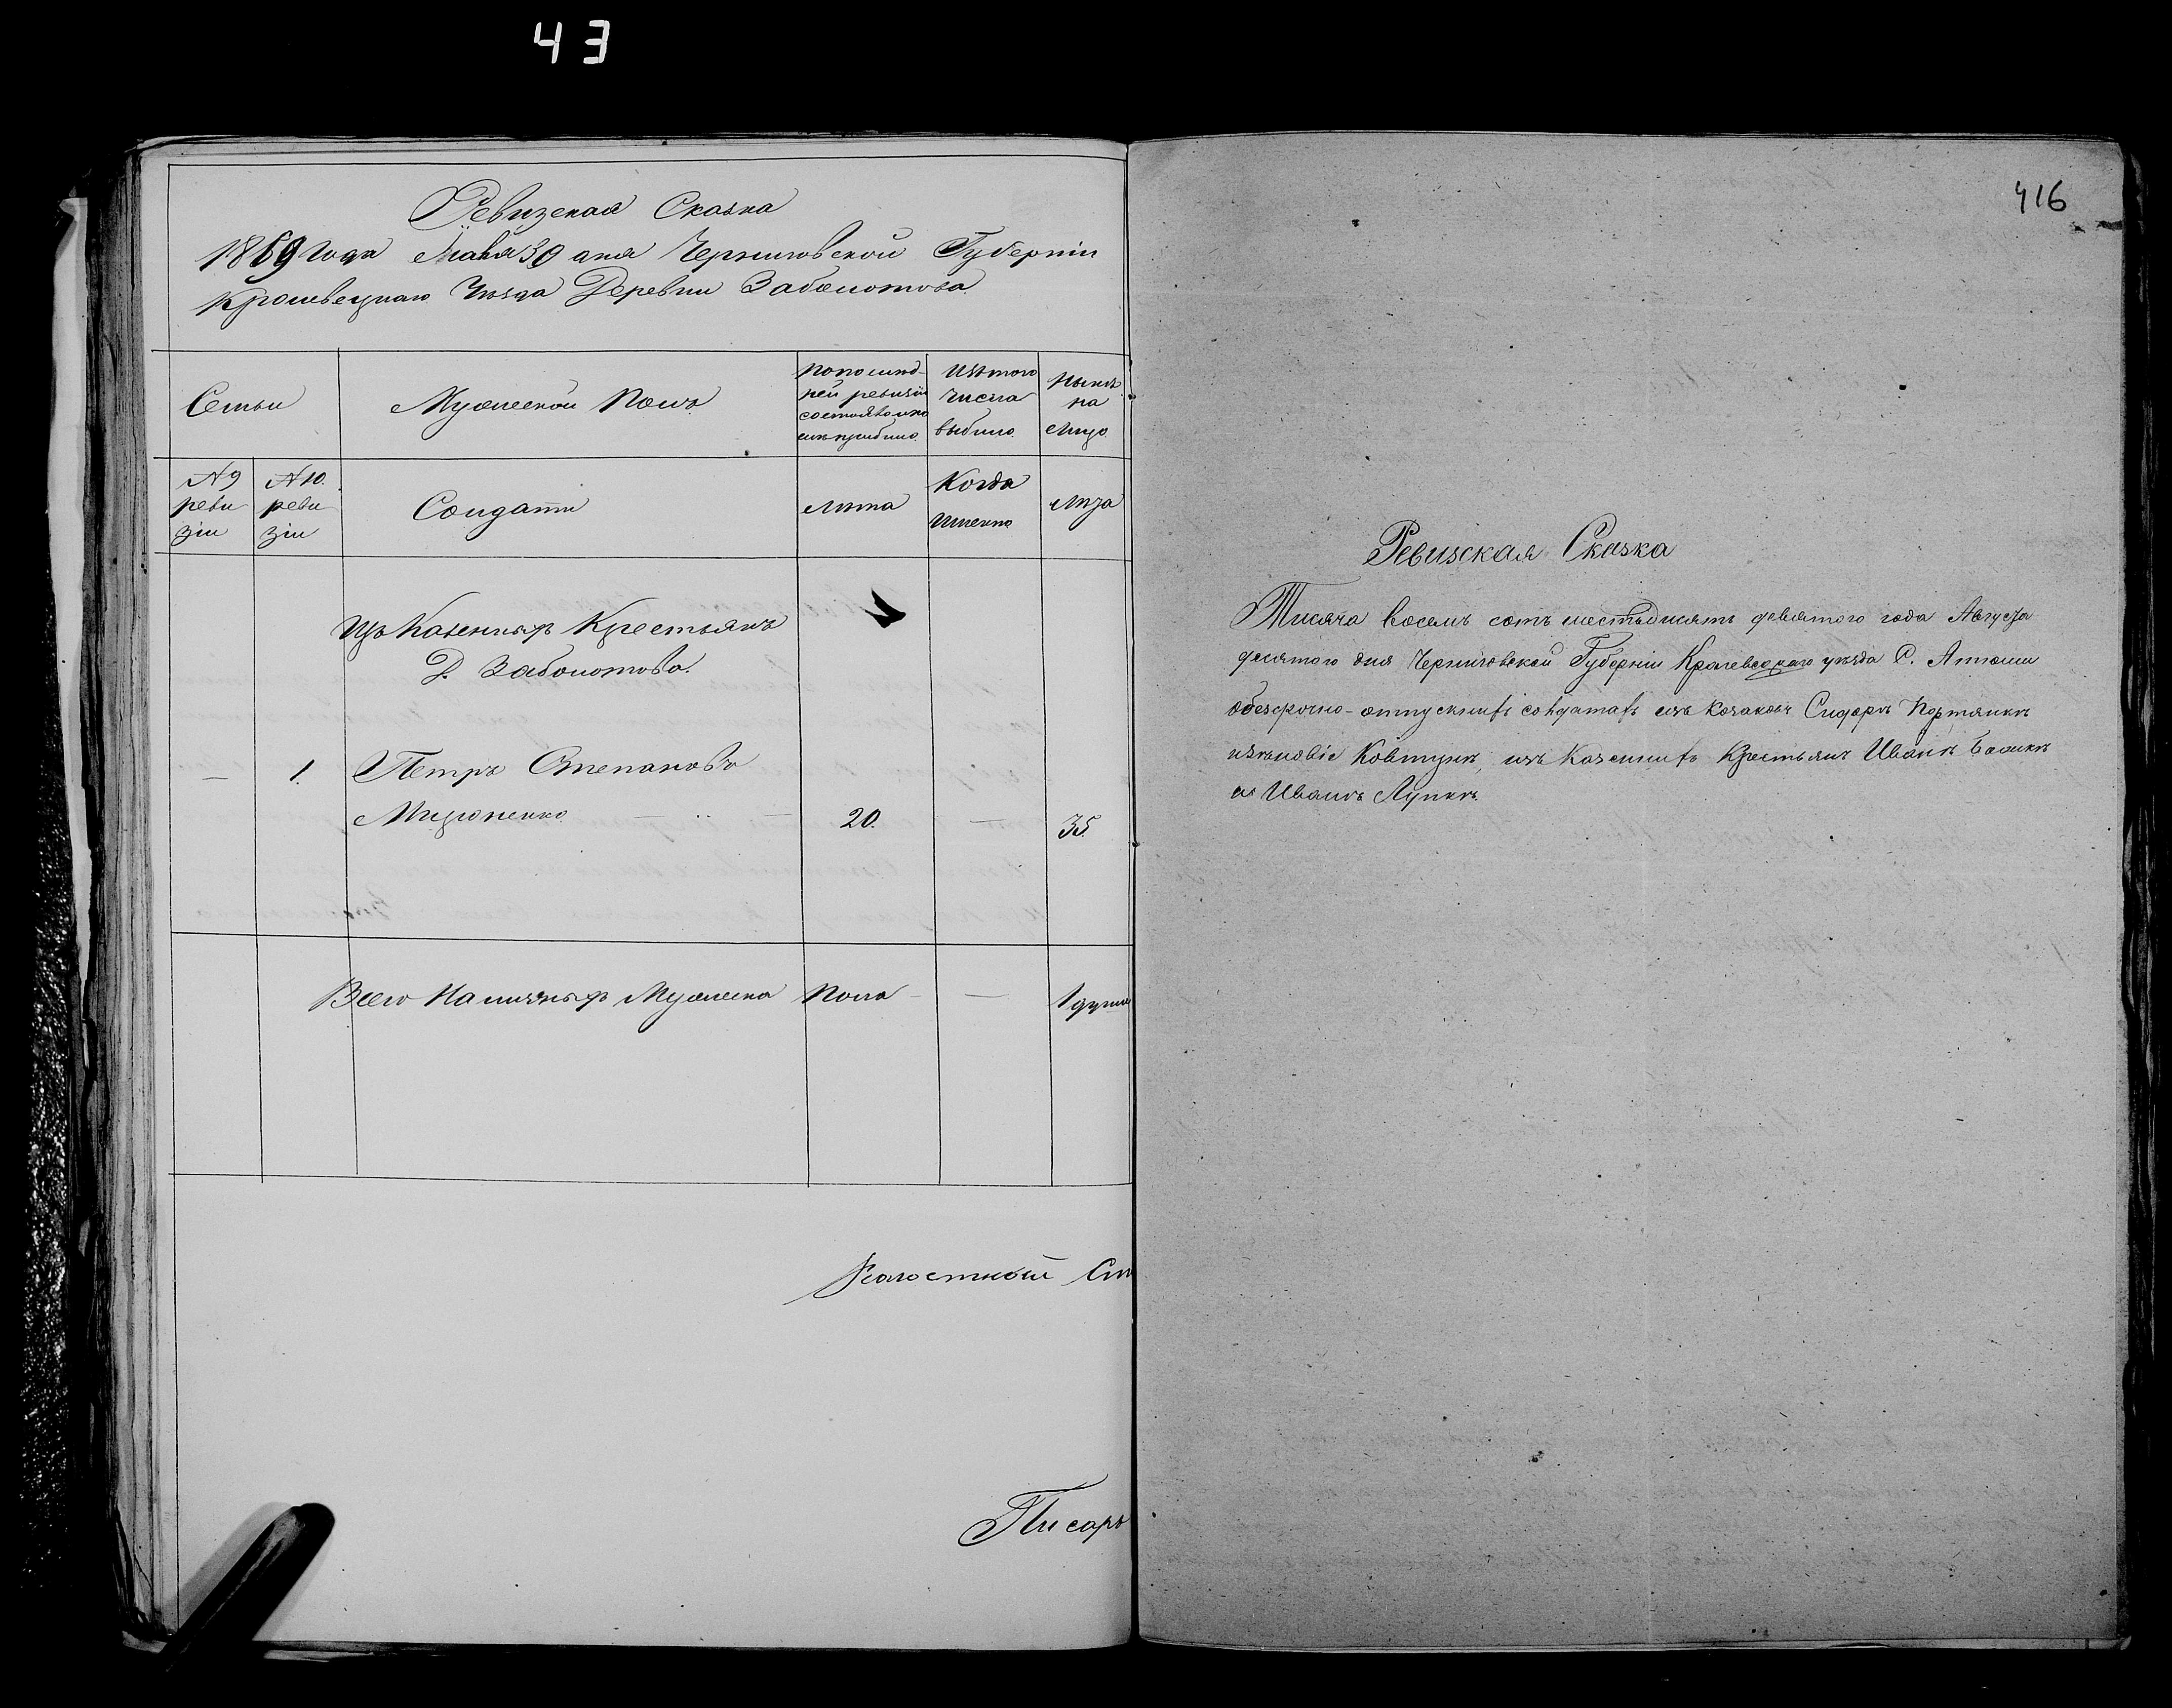 43
Ревизская Сказка
1869 года Маия 30 дня Черниговской Губерніи
Кролевецкаго Уѣзда Деревни Заболотова
Семьи
Мужескои Полъ
По послед-
ней ревизіи
состояло или
прибыло
Изтого
числа
выбыло
Нынѣ
на
лицо
№ 9
реви
зіи
№ 10.
реви
зіи
Солдаты
Лѣта
Когда
именно
Лѣта
Изъ Казенныхъ Крестьянъ
Д. Заболотова.
— 1. Петръ Степановъ
Мироненко — 20. — 35.
Всего Налицныхъ Мужеска Пола — 1 душа
Волостной Ст
Писарь
416
Ревизская Сказка
Тисяча восемъ сотъ шестьдисятъ девятого года Августа
десятого дня Черниговской Губерніи Кролевецкаго уѣзда С.
обезсрочно-отпускныхъ солдатахъ изъ козаковъ Сидорѣ
Ковтунѣ, изъ Казенныхъ Крестьянъ Иванѣ
и Иванѣ Лупикѣ.